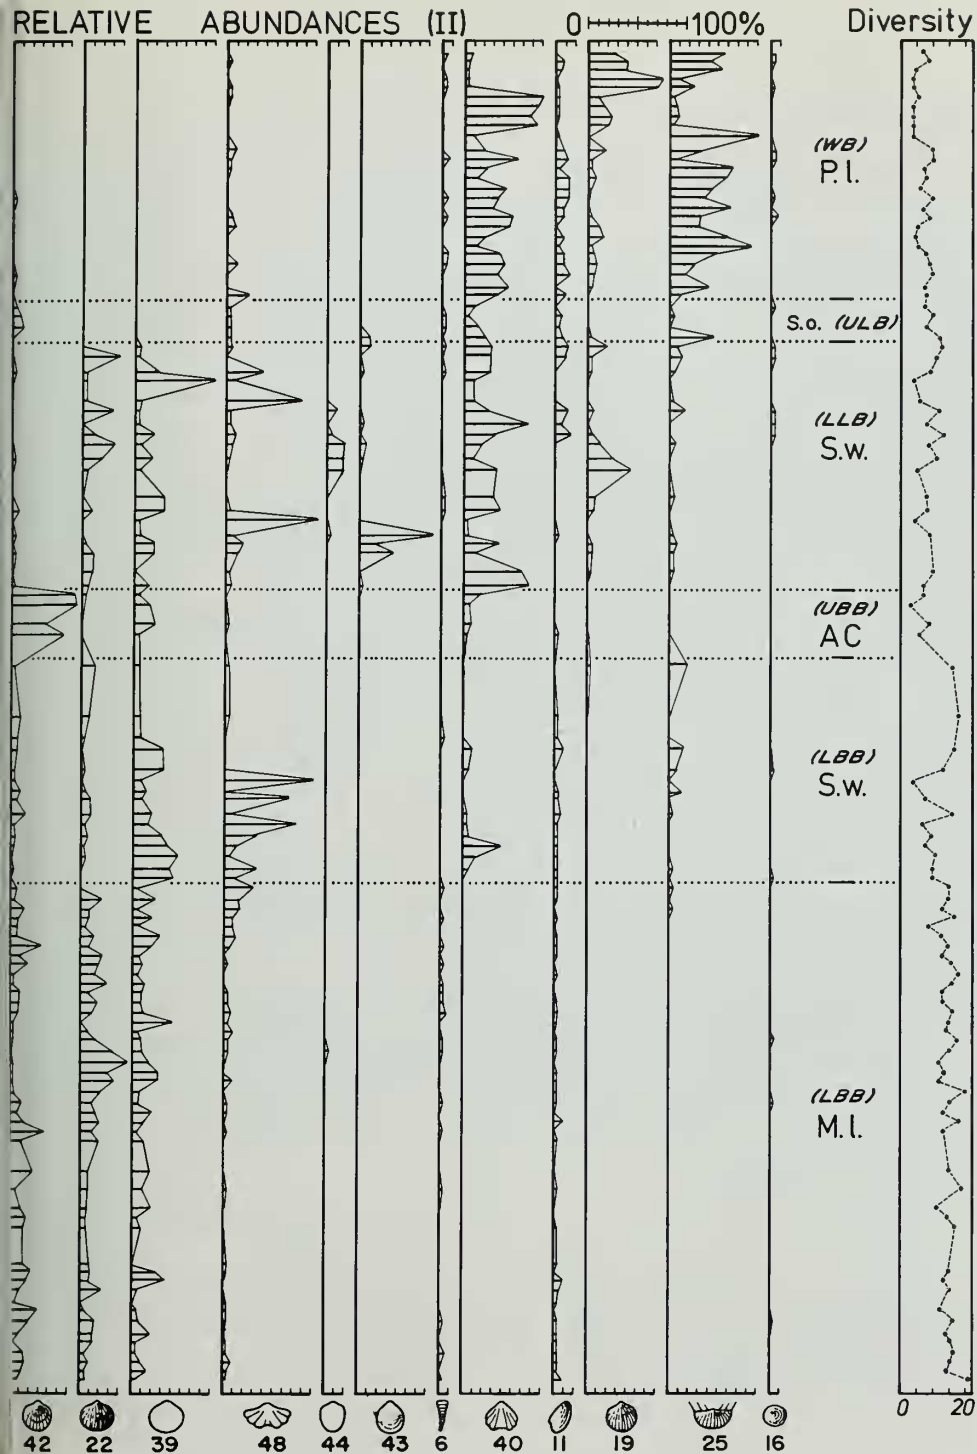 RELATIVE ABUNDANCES (II) 0 100% Diversity
(WB)
P.l.
S.o. (ULB)
(LLB)
S.w.
(UBB)
AC
(LBB)
S.w.
(LBB)
M.l.
0 20
42 22 39 48 44 43 6 40 11 19 25 16